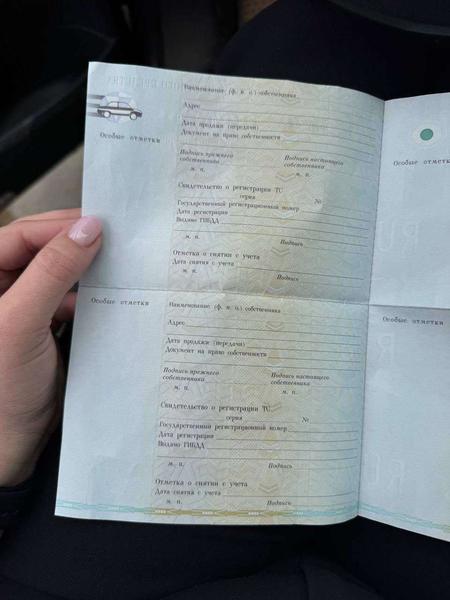 Наименование (ф. и. о.) собственника
Адрес
Дата продажи (передачи)
Документ на право собственности
Особые отметки
Подпись прежнего собственника
Подпись настоящего собственника
м. п.
м. п.
Свидетельство о регистрации ТС
серия
№
Государственный регистрационный номер
Дата регистрации
Выдано ГИБДД
м. п.
Подпись
Отметка о снятии с учета
Дата снятия с учета
м. п.
Подпись
Особые отметки
Особые отметки
Наименование (ф. и. о.) собственника
Адрес
Дата продажи (передачи)
Документ на право собственности
Подпись прежнего собственника
Подпись настоящего собственника
м. п.
м. п.
Свидетельство о регистрации ТС
серия
№
Государственный регистрационный номер
Дата регистрации
Выдано ГИБДД
м. п.
Подпись
Отметка о снятии с учета
Дата снятия с учета
м. п.
Подпись
Особые отметки